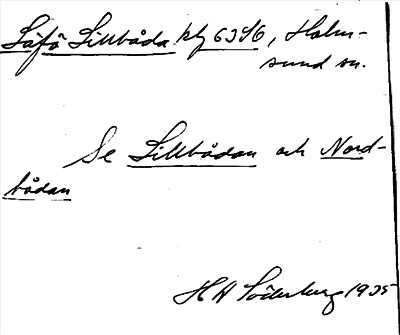 Låfö Lillbåda kbl 6396, Holm-
sund sn.
Se Lillbådan och Nord-
bådan
HA Söderberg 1935